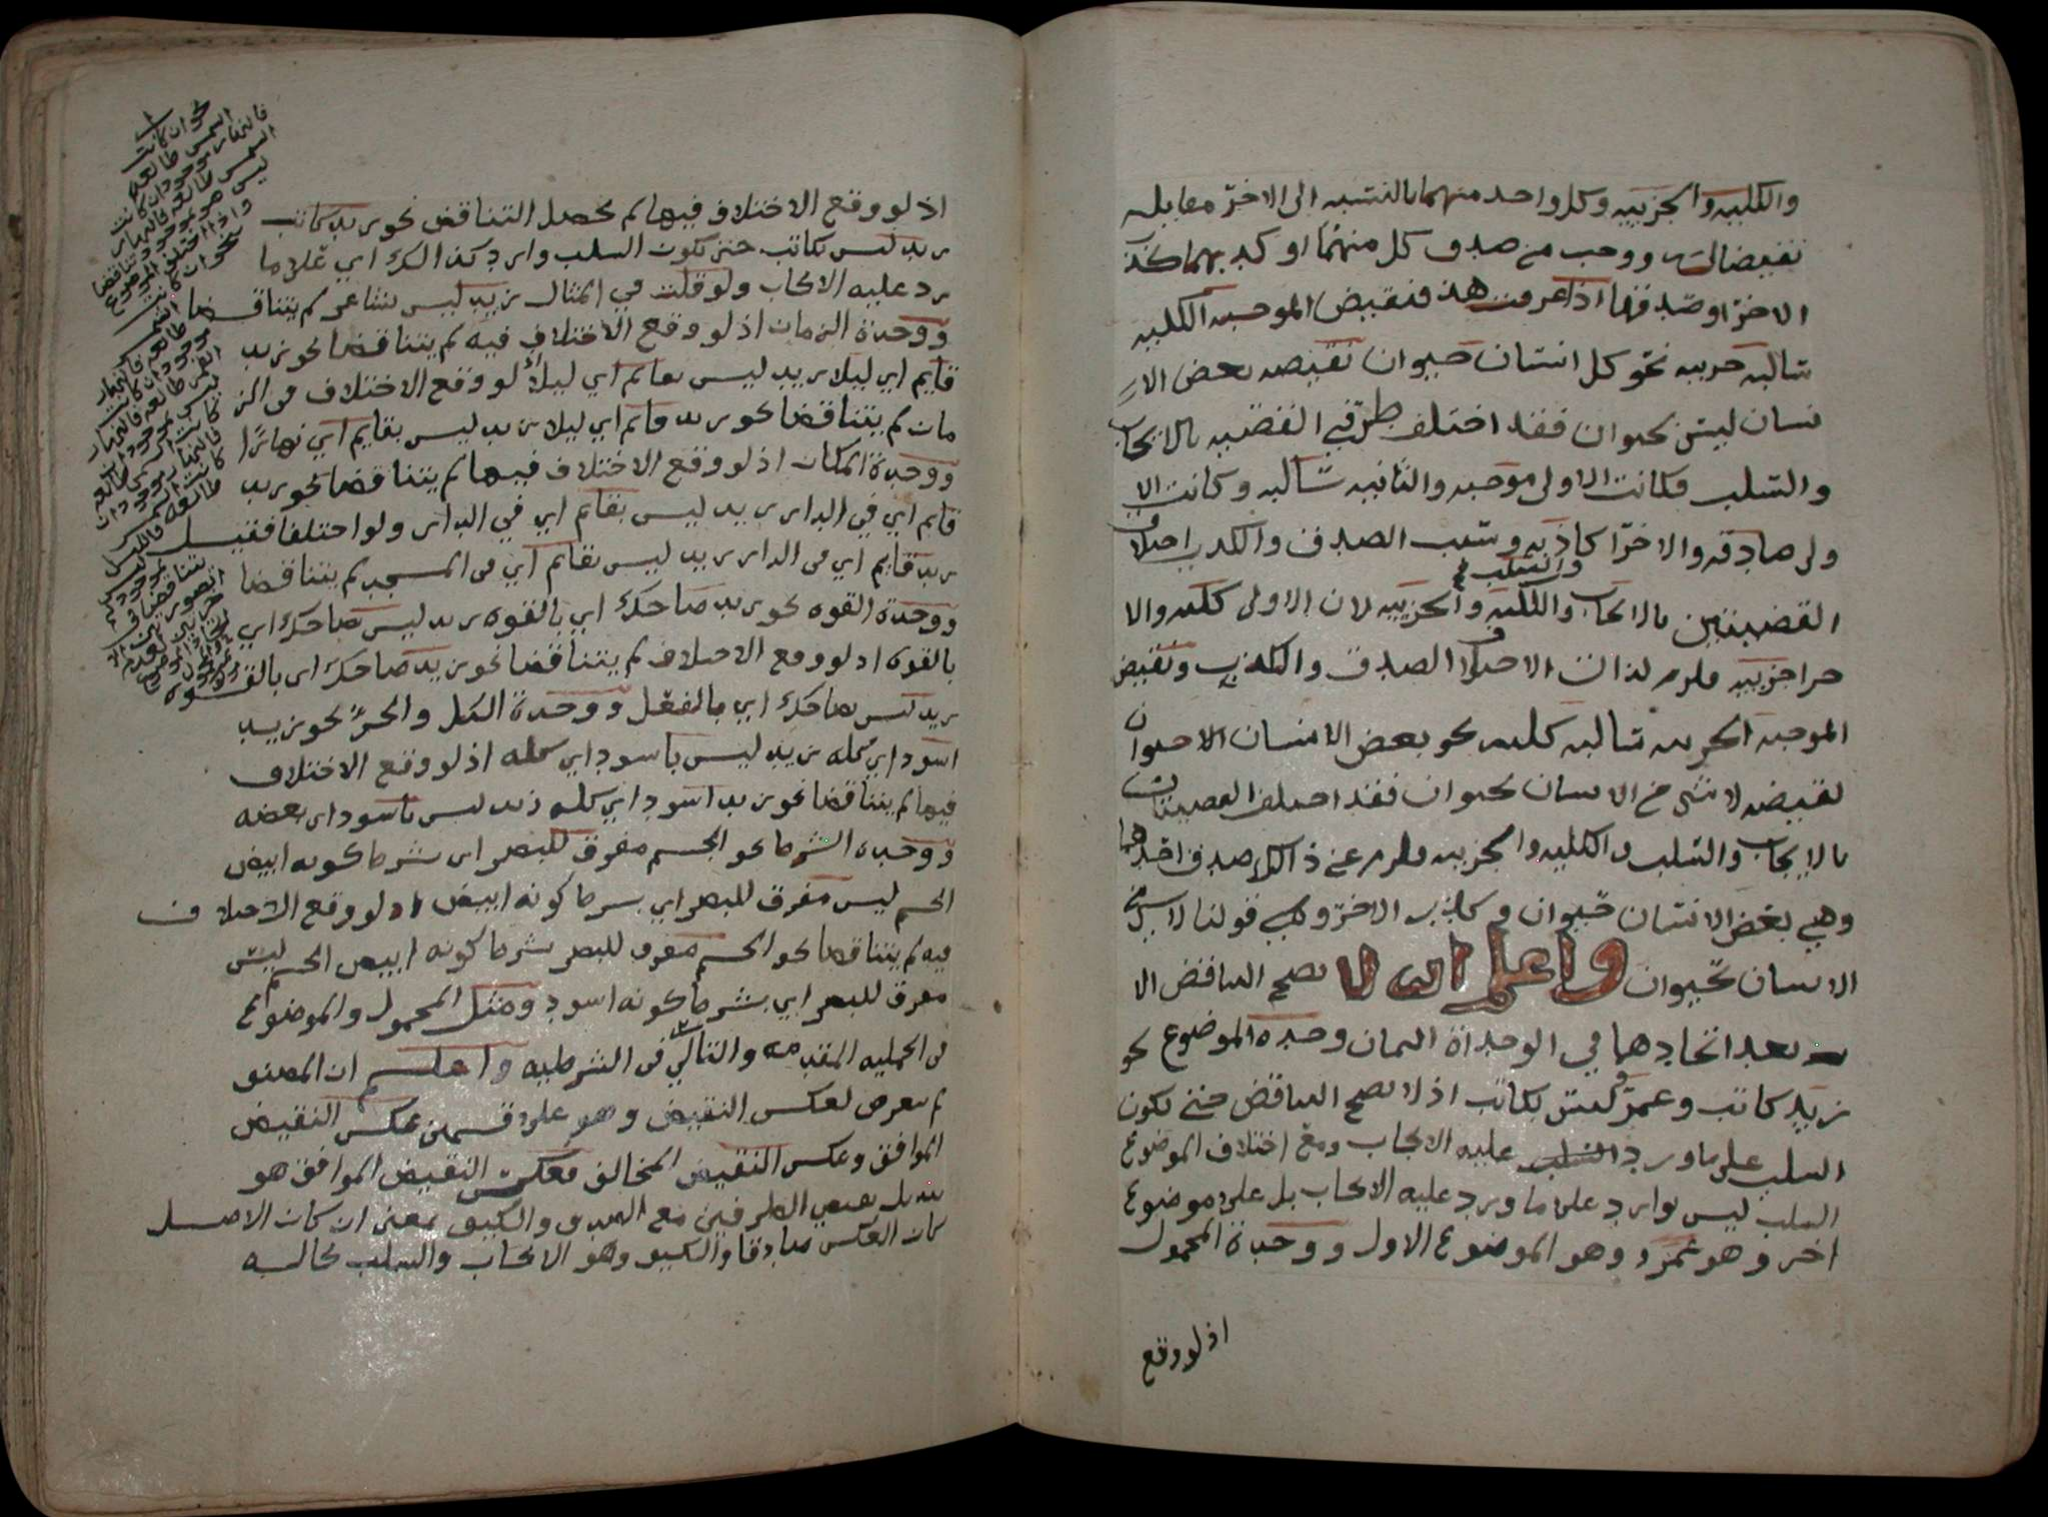 والكليه والجزييه وكل واحد منهما بالنسبه الى الاخر مقابله
نقيضا له ووجب من صدق كل منهما او كذبهما كذب
الاخر او صدقها اذا عرفت هذ فنقيض الموجبه الكليه
سالبه جزييه نحو كل انسان حيوان نقيضه بعض الا
نسان ليس بحيوان فقد اختلف طرفي القضيه بالايجاب
والسلب فكانت الاولى موجبه والثانيه سالبه وكانت الا
ولى صادقه والاخرا كاذبه وسبب الصدق والكذب اختلاف
القضيتين بالايجاب والسلب والكليه والجزييه لان الاولى كليه والا
خرا جزييه فلزم لذات الاختلاف الصدق والكذب ونقيض
الموجبه الجزييه سالبه كليه نحو بعض الانسان الاحيوان
نقيضه لا شي من الانسان بحيوان فقد اختلف القضيتان
بالايجاب والسلب والكليه والجزييه فلزم عن ذالك صدق احدهما
وهي بعض الانسان حيوان وكذب الاخر وهي قولنا لا شي من
الانسان بحيوان واعلم انه لا يصح التناقض الا
بعد اتحادهما في الوحداة الثمان وحدة الموضوع نحو
زيد كاتب وعمرو ليس بكاتب اذ لا يصح التناقض حتى تكون
السلب على ما ورد السلب عليه الايجاب ومع اختلاف الموضوع
السلب ليس بوارد على ما ورد عليه الايجاب بل على موضوع
اخر وهو عمرو وهو الموضوع الاول ووحدة المحمول
اذ لو وقع
اذ لو وقع الاختلاف فيها لم يحصل التناقض نحو زيد كاتب
زيد ليس بكاتب حتى تكون السلب وارد كذالك اي على ما
يرد عليه الايجاب ولو قلت في المثال زيد ليس بشاعر لم يتناقضا
ووحدة الزمان اذ لو وقع الاختلاف فيه لم يتناقضا نحو زيد
قايم اي ليلا زيد ليس بقايم اي ليلا لو وقع الاختلاف في الز
مان لم يتناقضا نحو زيد قايم اي ليلا زيد ليس بقايم اي نهارا
ووحدة المكان اذ لو وقع الاختلاف فيها لم يتناقضا نحو زيد
قايم اي في الدار زيد ليس بقايم اي في الدار ولو اختلفا فقيل
زيد قايم اي في الدار زيد ليس بقايم اي في المسجد لم يتناقضا
ووحدة القوه نحو زيد ضاحك اي بالقوه زيد ليس ضاحك اي
بالقوه اذ لو وقع الاختلاف لم يتناقضا نحو زيد ضاحك اي بالقوه
زيد ليس بضاحك اي بالفعل ووحدة الكل والجز نحو زيد
اسود اي كله زيد ليس باسود اي كله اذ لو وقع الاختلاف
فيها لم يتناقضا نحو زيد اسود اي كله زيد ليس باسود اي بعضه
ووحدة الشرط نحو الجسم مفرق للبصر اي بشرط كونه ابيض
الجسم ليس مفرق للبصر اي بشرط كونه ابيض اذ لو وقع الاختلاف
فيه لم يتناقضا نحو الجسم مفرق للبصر بشرط كونه ابيض الجسم ليس
مفرق للبصر اي بشرط كونه اسود ومثل المحمول والموضوع
في الحمليه المقدمه والتالي في الشرطيه واعلم ان المصنف
لم يتعرض لعكس النقيض وهو على قسمين عكس النقيض
الموافق وعكس النقيض المخالف فعكس النقيض الموافق هو
تبديل نقيض الطرفين مع الصدق والكيف بمعنى ان كان الاصل
كان العكس صادقا والكيف وهو الايجاب والسلب بحاله